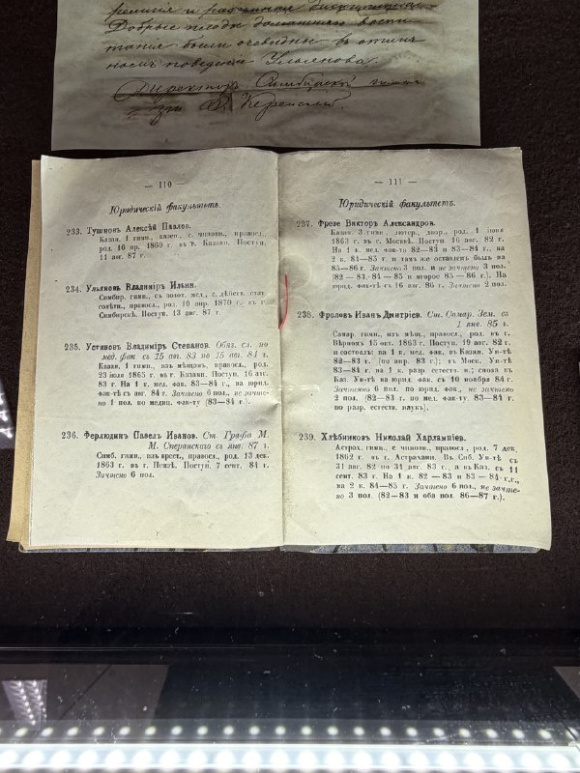 решнія и разумная дисциплина.
Добрые плоды домашняго воспи
танія были очевидны въ отлич
номъ поведеніи Ульянова.
Директоръ Симбирской гимна
зіи Ѳ. Керенскій.
— 110 —
Юридическій факультетъ.
233. Тушновъ Алексѣй Павлов.
Казан. 1 гимн., казен., с. чиновн., правосл.,
род. 16 пр. 1869 г. въ г. Казани. Поступ.
11 авг. 87 г.
234. Ульяновъ Владиміръ Ильин.
Симбир. гимн., съ золот. мед., с. дѣйст. стат.
совѣтн., правосл., род. 10 апр. 1870 г. въ г.
Симбирскѣ. Поступ. 13 авг. 87 г.
235. Устиновъ Владиміръ Степанов. Обяз. сл. по
мед. фак. съ 25 авг. 83 по 15 авг. 84 г.
Казан. 1 гимн., изъ мѣщанъ, правосл., род.
23 іюля 1865 г. въ г. Казани. Поступ. 16 авг.
83 г. На 1 к. мед. фак. 83—84 г., на юрид.
фак-тѣ съ авг. 84 г. Зачтено 6 пол., не зачте-
но 1 пол. по медиц. фак-ту (83—84 г.).
236. Ферлюдинъ Павелъ Иванов. Ст. Графа М.
М. Сперанскаго съ янв. 87 г.
Симб. гимн., изъ крест., правосл., род. 13 дек.
1863 г. въ г. Пензѣ. Поступ. 7 сент. 84 г.
Зачтено 6 пол.
— 111 —
Юридическій факультетъ.
237. Фрезе Викторъ Александров.
Казан. 3 гимн., лютер., двор., род. 1 іюня
1863 г. въ г. Москвѣ. Поступ. 16 авг. 82 г.
На 1 к. мед. фак-та 82—83 и 83—84 г., на
2 к. 84—85 г. и тамъ же оставленъ былъ на
85—86 г. Зачтено 3 пол. и не зачтено 3 пол.
82—83, 84—85 и второе 85—86 г.). На
юрид. фак-тѣ съ 16 авг. 86 г. Зачтено 2 пол.
238. Фроловъ Иванъ Дмитріев. Ст. Самар. Зем. съ
1 янв. 85 г.
Самар. гимн., изъ мѣщ., правосл., род. въ г.
Вѣрномъ 15 окт. 1863 г. Поступ. 19 авг. 82 г.
и состоялъ: на 1 к. мед. фак. въ Казан. Ун-тѣ
82—83 г. (по апр. 83 г.); въ Моск. Ун-тѣ
83—84 г. на 1 к. разр. естеств. н.; снова въ
Каз. Ун-тѣ на юрид. фак. съ 10 ноября 84 г.
Зачтено 6 пол. по юрид. фак., не зачтено
2 пол. (82—83 г. по мед. фак. и 83—84 г.
по разр. естеств. наук.).
239. Хлѣбниковъ Николай Харлампіев.
Астрах. гимн., с. чиновн., правосл., род. 7 дек.
1862 г. въ г. Астрахани. Въ Спб. Ун-тѣ съ
31 авг. 82 по 31 авг. 83 г., а въ Каз. съ 11
сент. 83 г. На 1 к. 82—83 и 83—84 г.г.,
на 2 к. 84—85 г. Зачтено 6 пол., не зачте-
но 3 пол. (82—83 и оба пол. 86—87 г.).